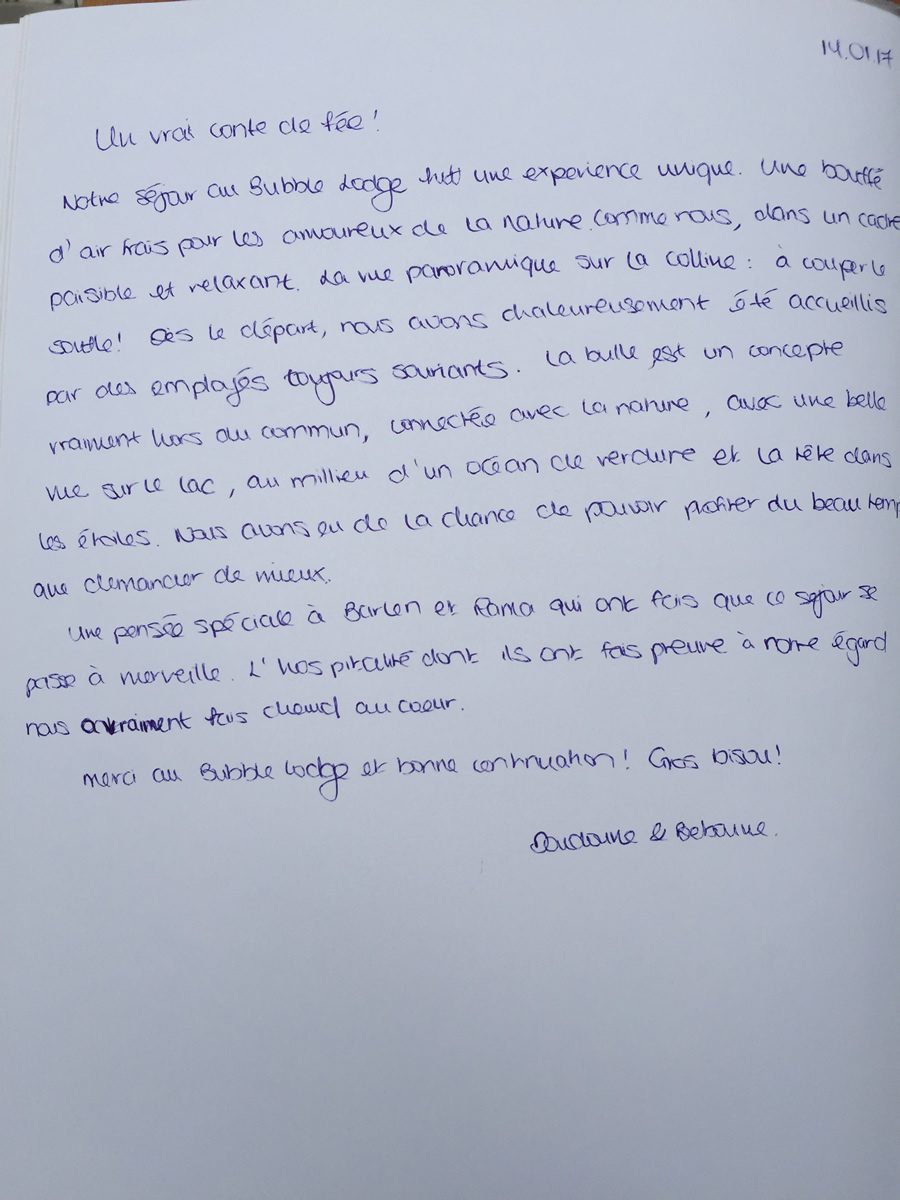 14.01.17
Un vrai conte de fée!
Notre séjour au Bubble Lodge fut une experience unique. Une bouffé
d'air frais pour les amoureux de la nature comme nous, dans un cadre
paisible et relaxant. La vue panoramique sur la colline : à couper le
souffle! Dès le départ, nous avons chaleureusement été accueillis
par des employés toujours souriants. La bulle est un concepte
vraiment hors du commun, connectée avec la nature, avec une belle
vue sur le lac, au millieu d'un océan de verdure et la tête dans
les étoiles. Nous avons eu de la chance de pouvoir profiter du beau temp
que demander de mieux.
Une pensée spéciale à Barlen et Rama qui ont fais que ce sejour se
passe à merveille. L'hospitalité dont ils ont fais preuve à notre égard
nous a vraiment fais chaud au coeur.
Merci au Bubble Lodge et bonne continuation! Gros bisou!
&